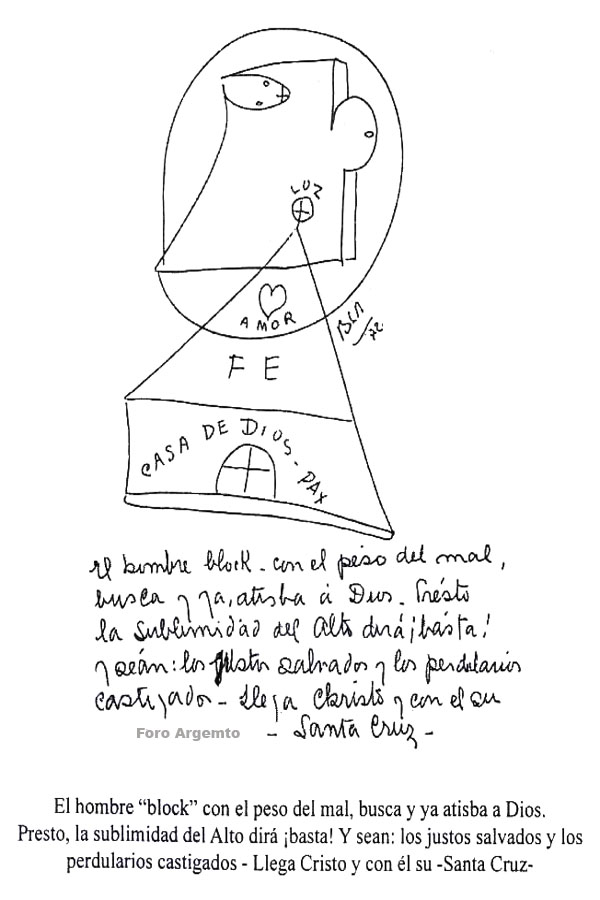 LUZ
AMOR
BSP
72
FE
CASA DE DIOS - PAX
El hombre block - con el peso del mal,
busca y ya, atisba á Dios. Présto
la sublimidad del Alto dirá ¡basta!
y seán: los justos salvados y los perdularios
castigados - Llega Christo y con el su
- Santa Cruz -
Foro Argemto
El hombre “block” con el peso del mal, busca y ya atisba a Dios.
Presto, la sublimidad del Alto dirá ¡basta! Y sean: los justos salvados y los
perdularios castigados - Llega Cristo y con él su -Santa Cruz-